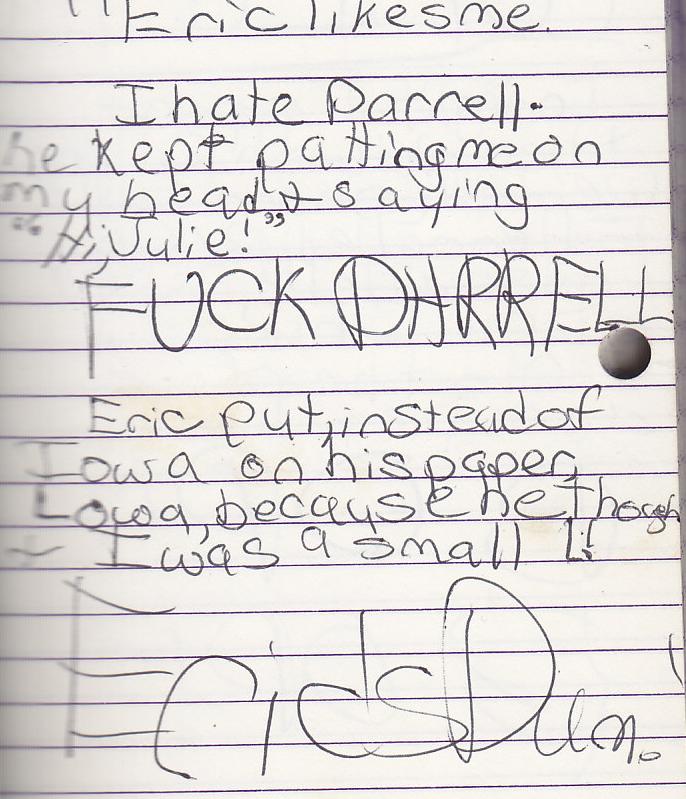 Eric likes me.
I hate Darrell.
he kept patting me on
my head & saying
"Hi, Julie!"
FUCK DARRELL
Eric put, instead of
Iowa on his paper,
Lowa, because he though
t I was a small L!!
Eric is Dum.